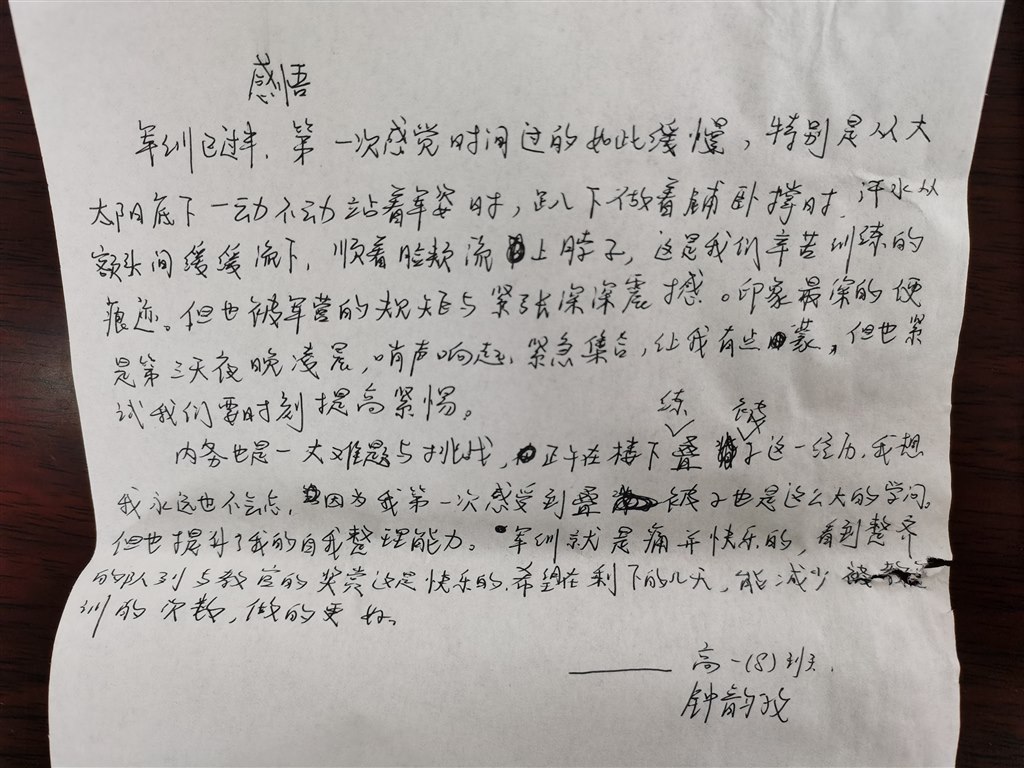 感悟
军训已过半，第一次感觉时间过的如此缓慢，特别是从大
太阳底下一动不动站着军姿时，趴下做着铺卧撑时，汗水从
额头间缓缓流下，顺着脸颊流上脖子，这是我们辛苦训练的
痕迹。但也被军营的规矩与紧张深深震撼。印象最深的便
是第三天夜晚凌晨，哨声响起，紧急集合，让我有点蒙，但也
试我们要时刻提高紧惕。
内务也是一大难题与挑战，正午在楼下练叠被子这一经历，我想
我永远也不会忘，因为我第一次感受到叠被子也是这么大的学问。
但也提升了我的自我整理能力。军训就是痛并快乐的，看到整齐
的队列与教官的奖赏这是快乐的，希望在剩下的几天，能减少被教官
训的次数，做的更好。
——高一(8)班
钟韵